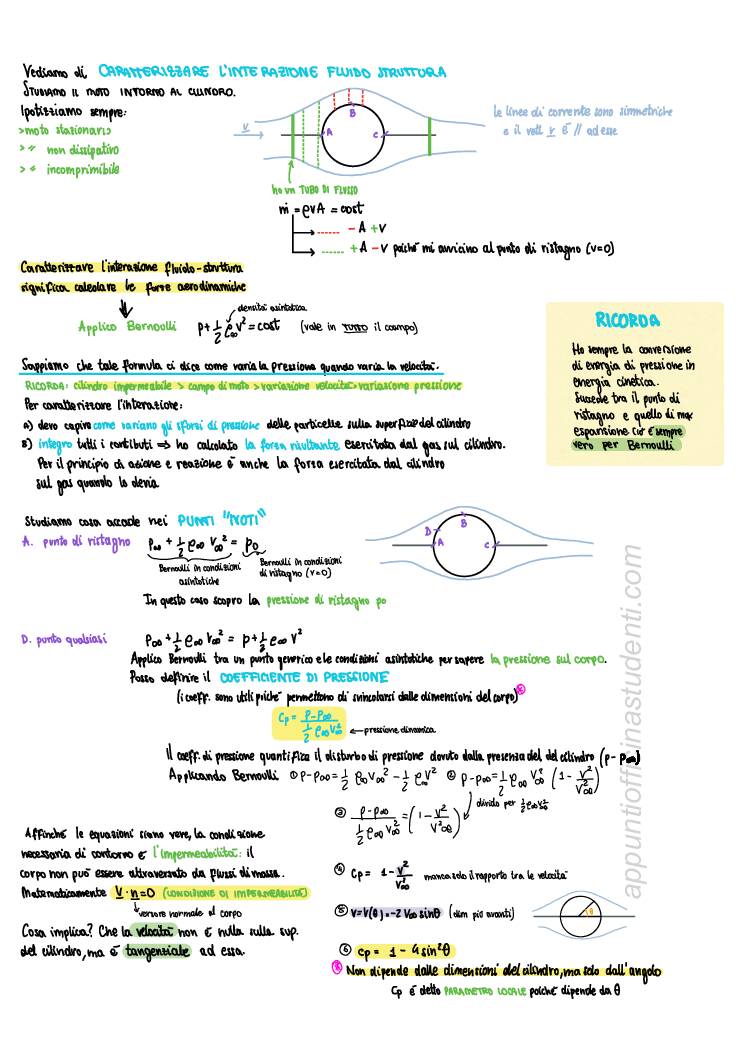 Vediamo di CARATTERIZZARE L'INTERAZIONE FLUIDO STRUTTURA
STUDIAMO IL MOTO INTORNO AL CILINDRO.
Ipotizziamo sempre:
> moto stazionario
> " non dissipativo
> " incomprimibile
v
A
B
C
le linee di corrente sono simmetriche
e il vett v è // ad esse
ho un TUBO DI FLUSSO
ṁ = ρVA = cost
→ ...... - A + v
→ ...... + A - v poiché mi avvicino al punto di ristagno (v=0)
Caratterizzare l'interazione fluido-struttura
significa calcolare le forze aerodinamiche
densità asintotica
Applico Bernoulli p + 1/2 ρ∞ v² = cost (vale in TUTTO il campo)
RICORDA
Ho sempre la conversione
di energia di pressione in
energia cinetica.
Succede tra il punto di
ristagno e quello di max
espansione ciò è sempre
vero per Bernoulli
Sappiamo che tale formula ci dice come varia la pressione quando varia la velocità.
RICORDA: cilindro impermeabile > campo di moto > variazione velocità > variazione pressione
Per caratterizzare l'interazione:
a) devo capire come variano gli sforzi di pressione delle particelle sulla superficie del cilindro
B) integro tutti i contibuti ⇒ ho calcolato la forza risultante esercitata dal gas sul cilindro.
Per il principio di azione e reazione è anche la forza esercitata dal cilindro
sul gas quando lo devia
Studiamo cosa accade nei PUNTI "NOTI"
A. punto di ristagno p∞ + 1/2 ρ∞ V∞² = p0
Bernoulli in condizioni
asintotiche
Bernoulli in condizioni
di ristagno (v=0)
D
B
A
C
In questo caso scopro la pressione di ristagno po
D. punto qualsiasi p∞ + 1/2 ρ∞ V∞² = p + 1/2 ρ∞ V²
Applico Bernoulli tra un punto generico e le condizioni asintotiche per sapere la pressione sul corpo.
Posso definire il COEFFICIENTE DI PRESSIONE
(i coeff. sono utili perché permettono di svincolarsi dalle dimensioni del corpo) *
Cp = (p - p∞) / (1/2 ρ∞ V∞²) ← pressione dinamica
Il coeff. di pressione quantifica il disturbo di pressione dovuto dalla presenza del del cilindro (p - p∞)
Applicando Bernoulli ① p - p∞ = 1/2 ρ∞ V∞² - 1/2 ρ∞ V² ② p - p∞ = 1/2 ρ∞ V∞² (1 - V²/V∞²)
divido per 1/2 ρ∞ V∞²
③ (p - p∞) / (1/2 ρ∞ V∞²) = (1 - V²/V²∞)
Affinché le equazioni siano vere, la condizione
necessaria di contorno è l'impermeabilità: il
corpo non può essere attraversato da flussi di massa.
Matematicamente V · n = 0 (CONDIZIONE DI IMPERMEABILITÀ)
versore normale al corpo
Cosa implica? Che la velocità non è nulla sulla sup.
del cilindro, ma è tangenziale ad essa.
④ Cp = 1 - V²/V∞² manca solo il rapporto tra le velocità
⑤ V = V(θ) = -2 V∞ sinθ (dim più avanti)
θ
⑥ Cp = 1 - 4 sin²θ
* Non dipende dalle dimensioni del cilindro, ma solo dall'angolo
Cp è detto PARAMETRO LOCALE poiché dipende da θ
appuntiofficinastudenti.com